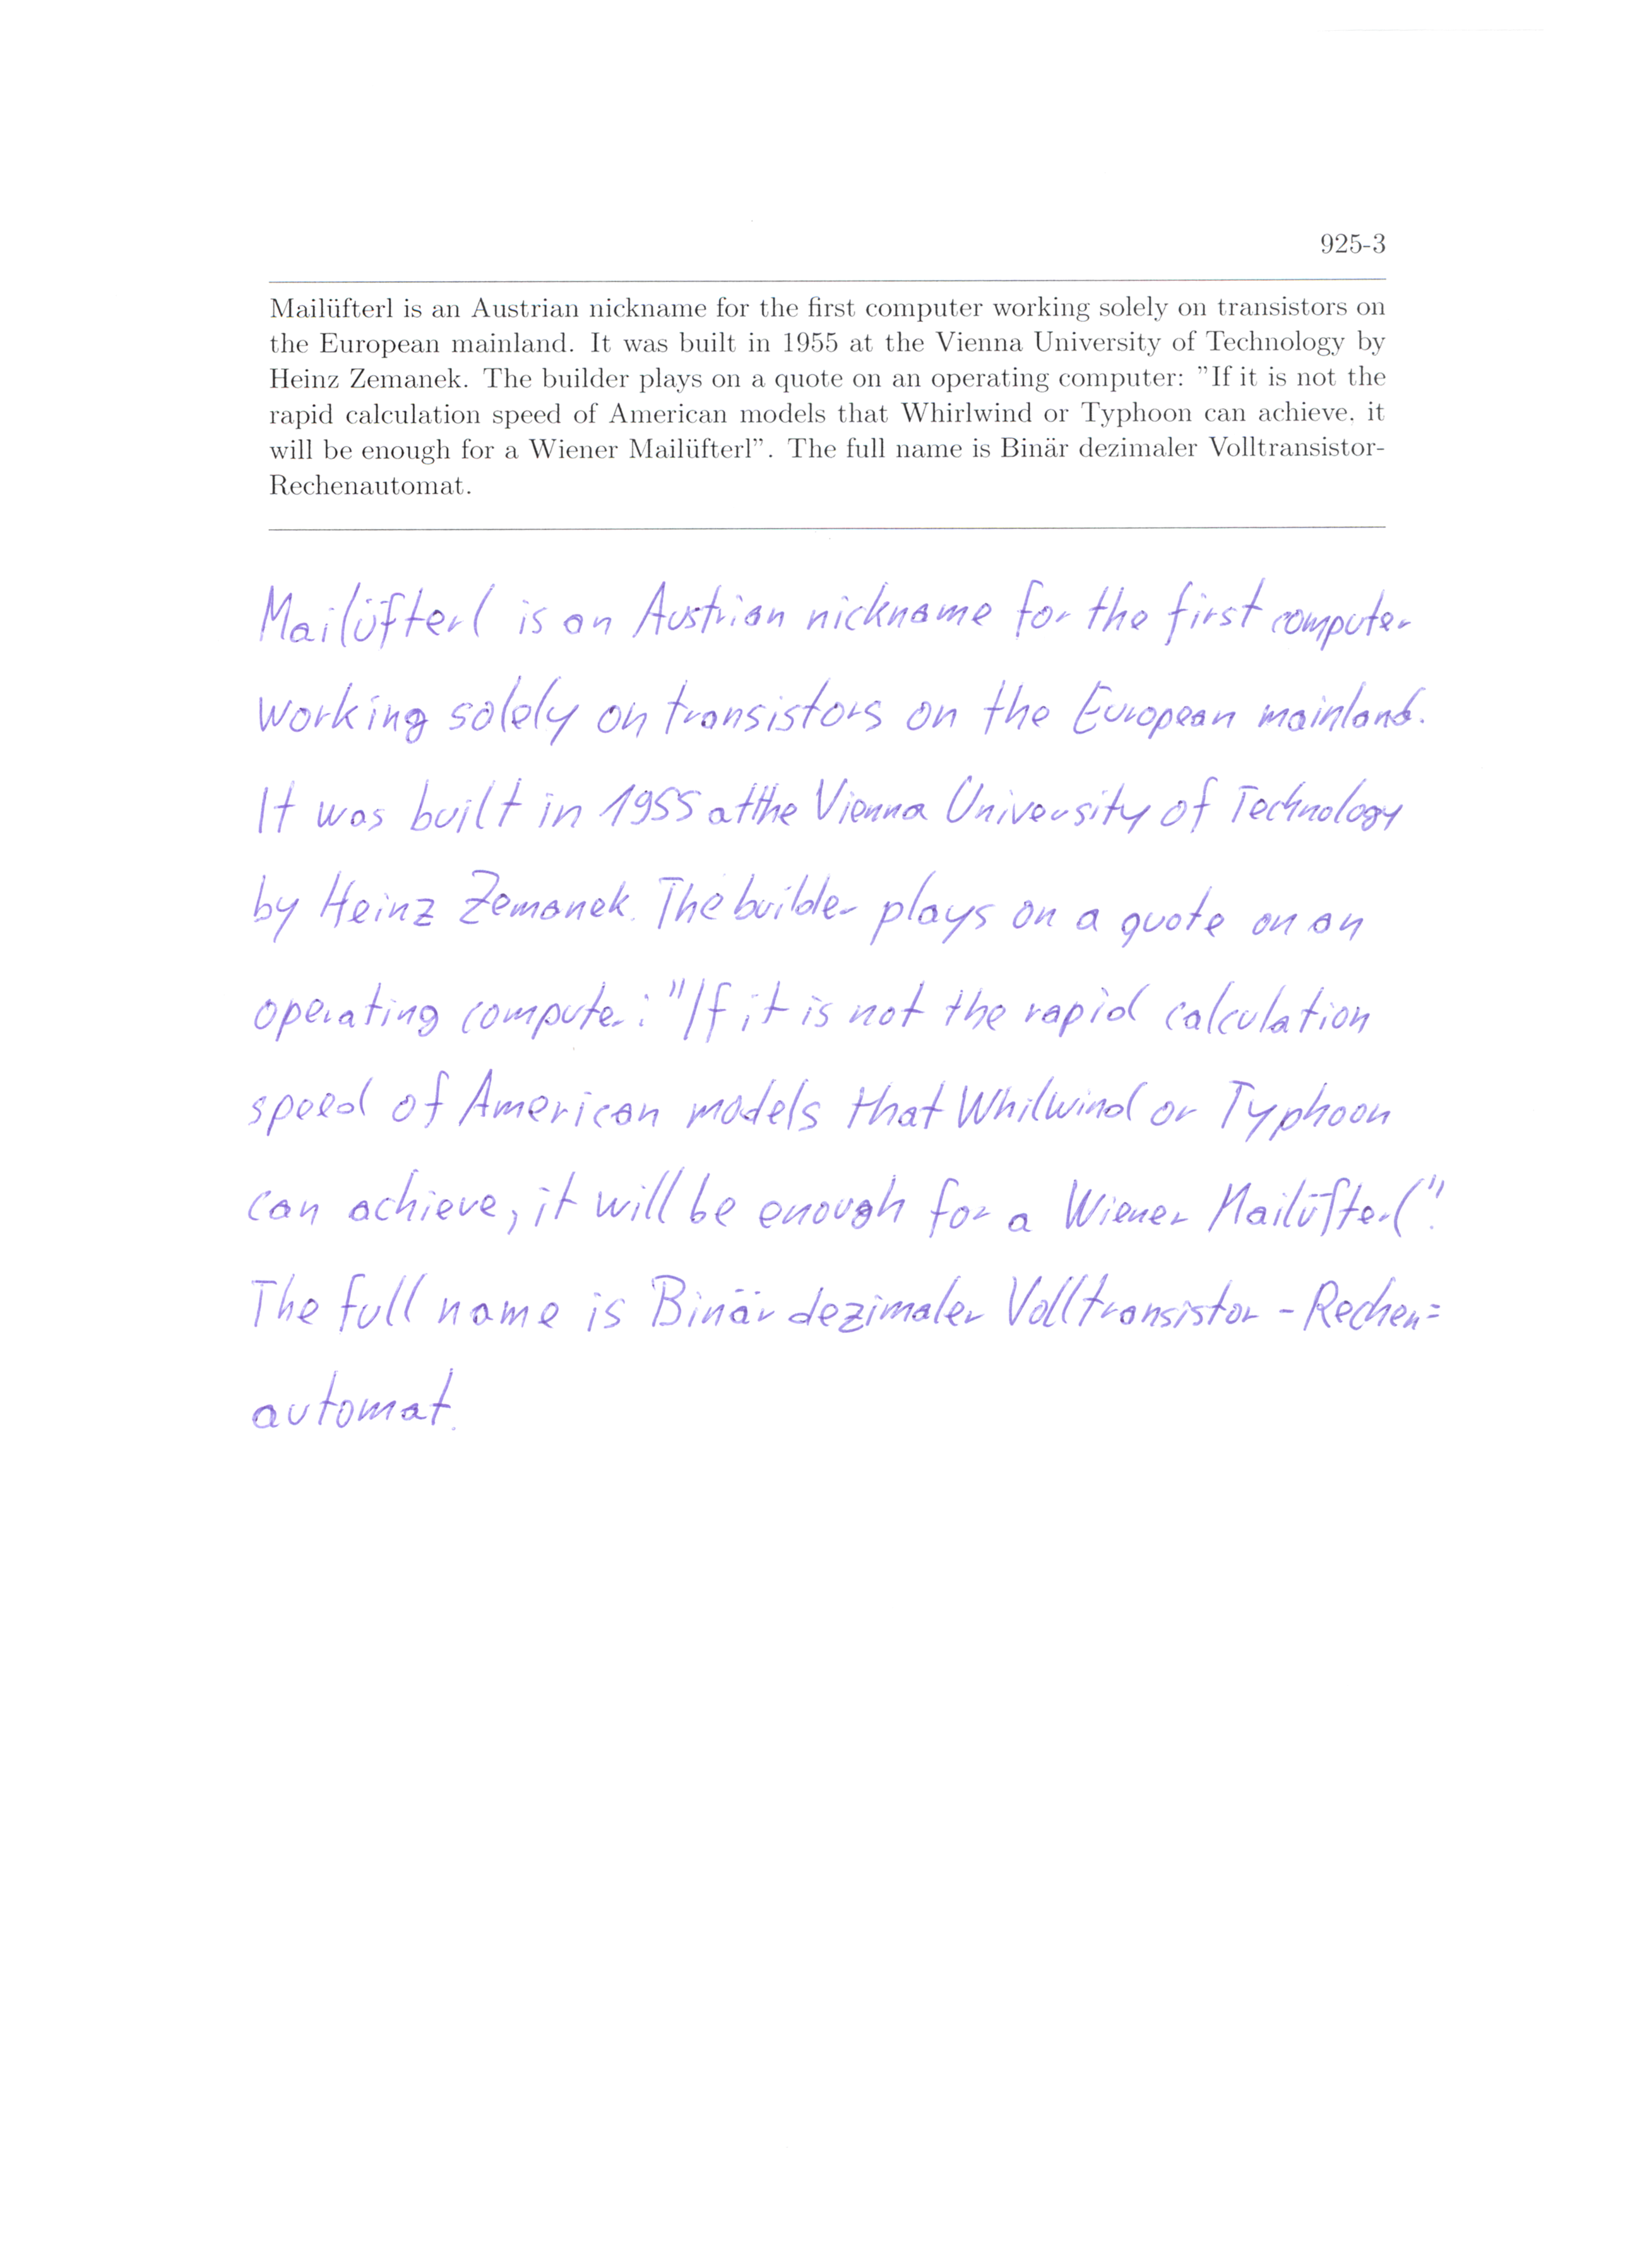 925-3
Mailüfterl is an Austrian nickname for the first computer working solely on transistors on
the European mainland. It was built in 1955 at the Vienna University of Technology by
Heinz Zemanek. The builder plays on a quote on an operating computer: "If it is not the
rapid calculation speed of American models that Whirlwind or Typhoon can achieve, it
will be enough for a Wiener Mailüfterl". The full name is Binär dezimaler Volltransistor-
Rechenautomat.
Mailüfterl is an Austrian nickname for the first computer
working solely on transistors on the European mainland.
It was built in 1955 at the Vienna University of Technology
by Heinz Zemanek. The builder plays on a quote on an
operating computer: "If it is not the rapid calculation
speed of American models that Whilwind or Typhoon
can achieve, it will be enough for a Wiener Mailüfterl".
The full name is Binär dezimaler Volltransistor - Rechen=
automat.